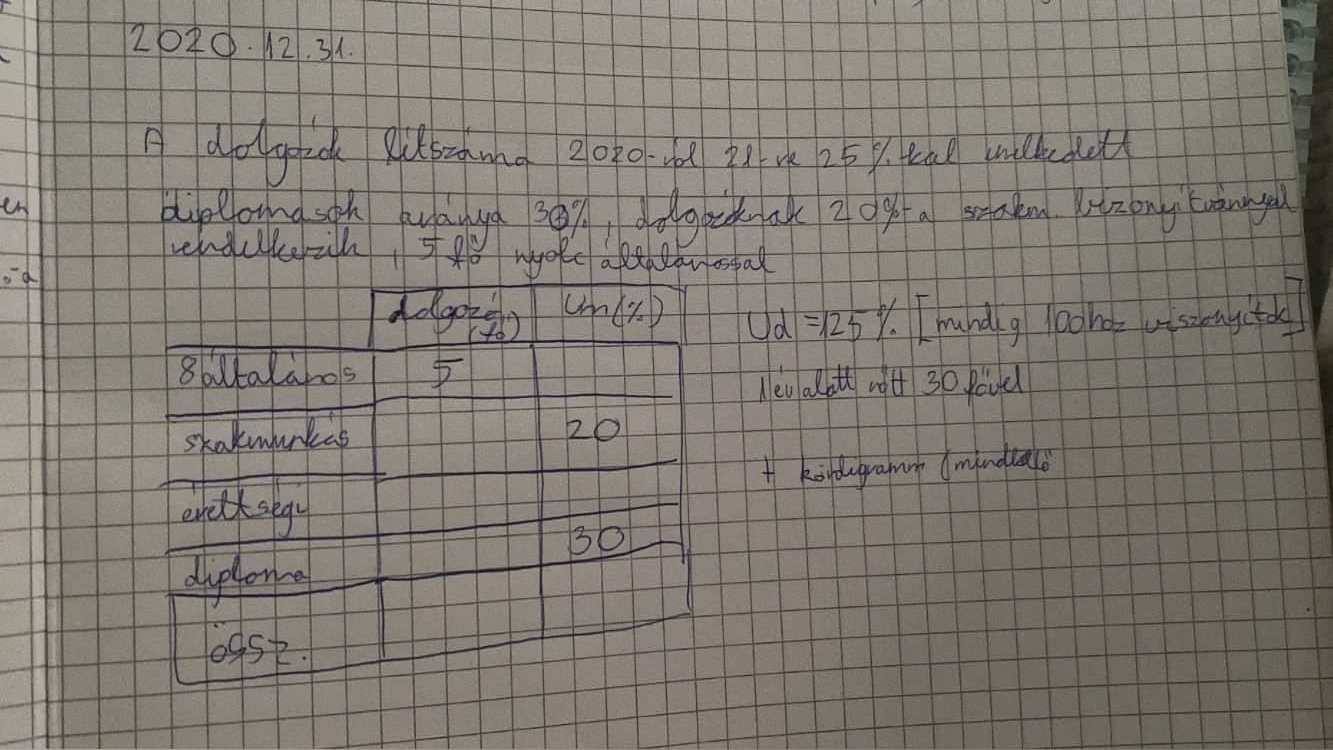 2020.12.31.
A dolgozók létszáma 2020-ról 21-re 25%-kal emelkedett
diplomások aránya 30%, dolgozóknak 20%-a szakm. bizonyítvánnyal
rendelkezik, 5 fő nyolc általánossal
dolgozó (fő) Um(%)
8általános 5
szakmunkás 20
érettségi
diploma 30
össz.
Vd=125% [mindig 100hoz viszonyítok]
1év alatt nőtt 30 fővel
+ kördigramm (mindkettő